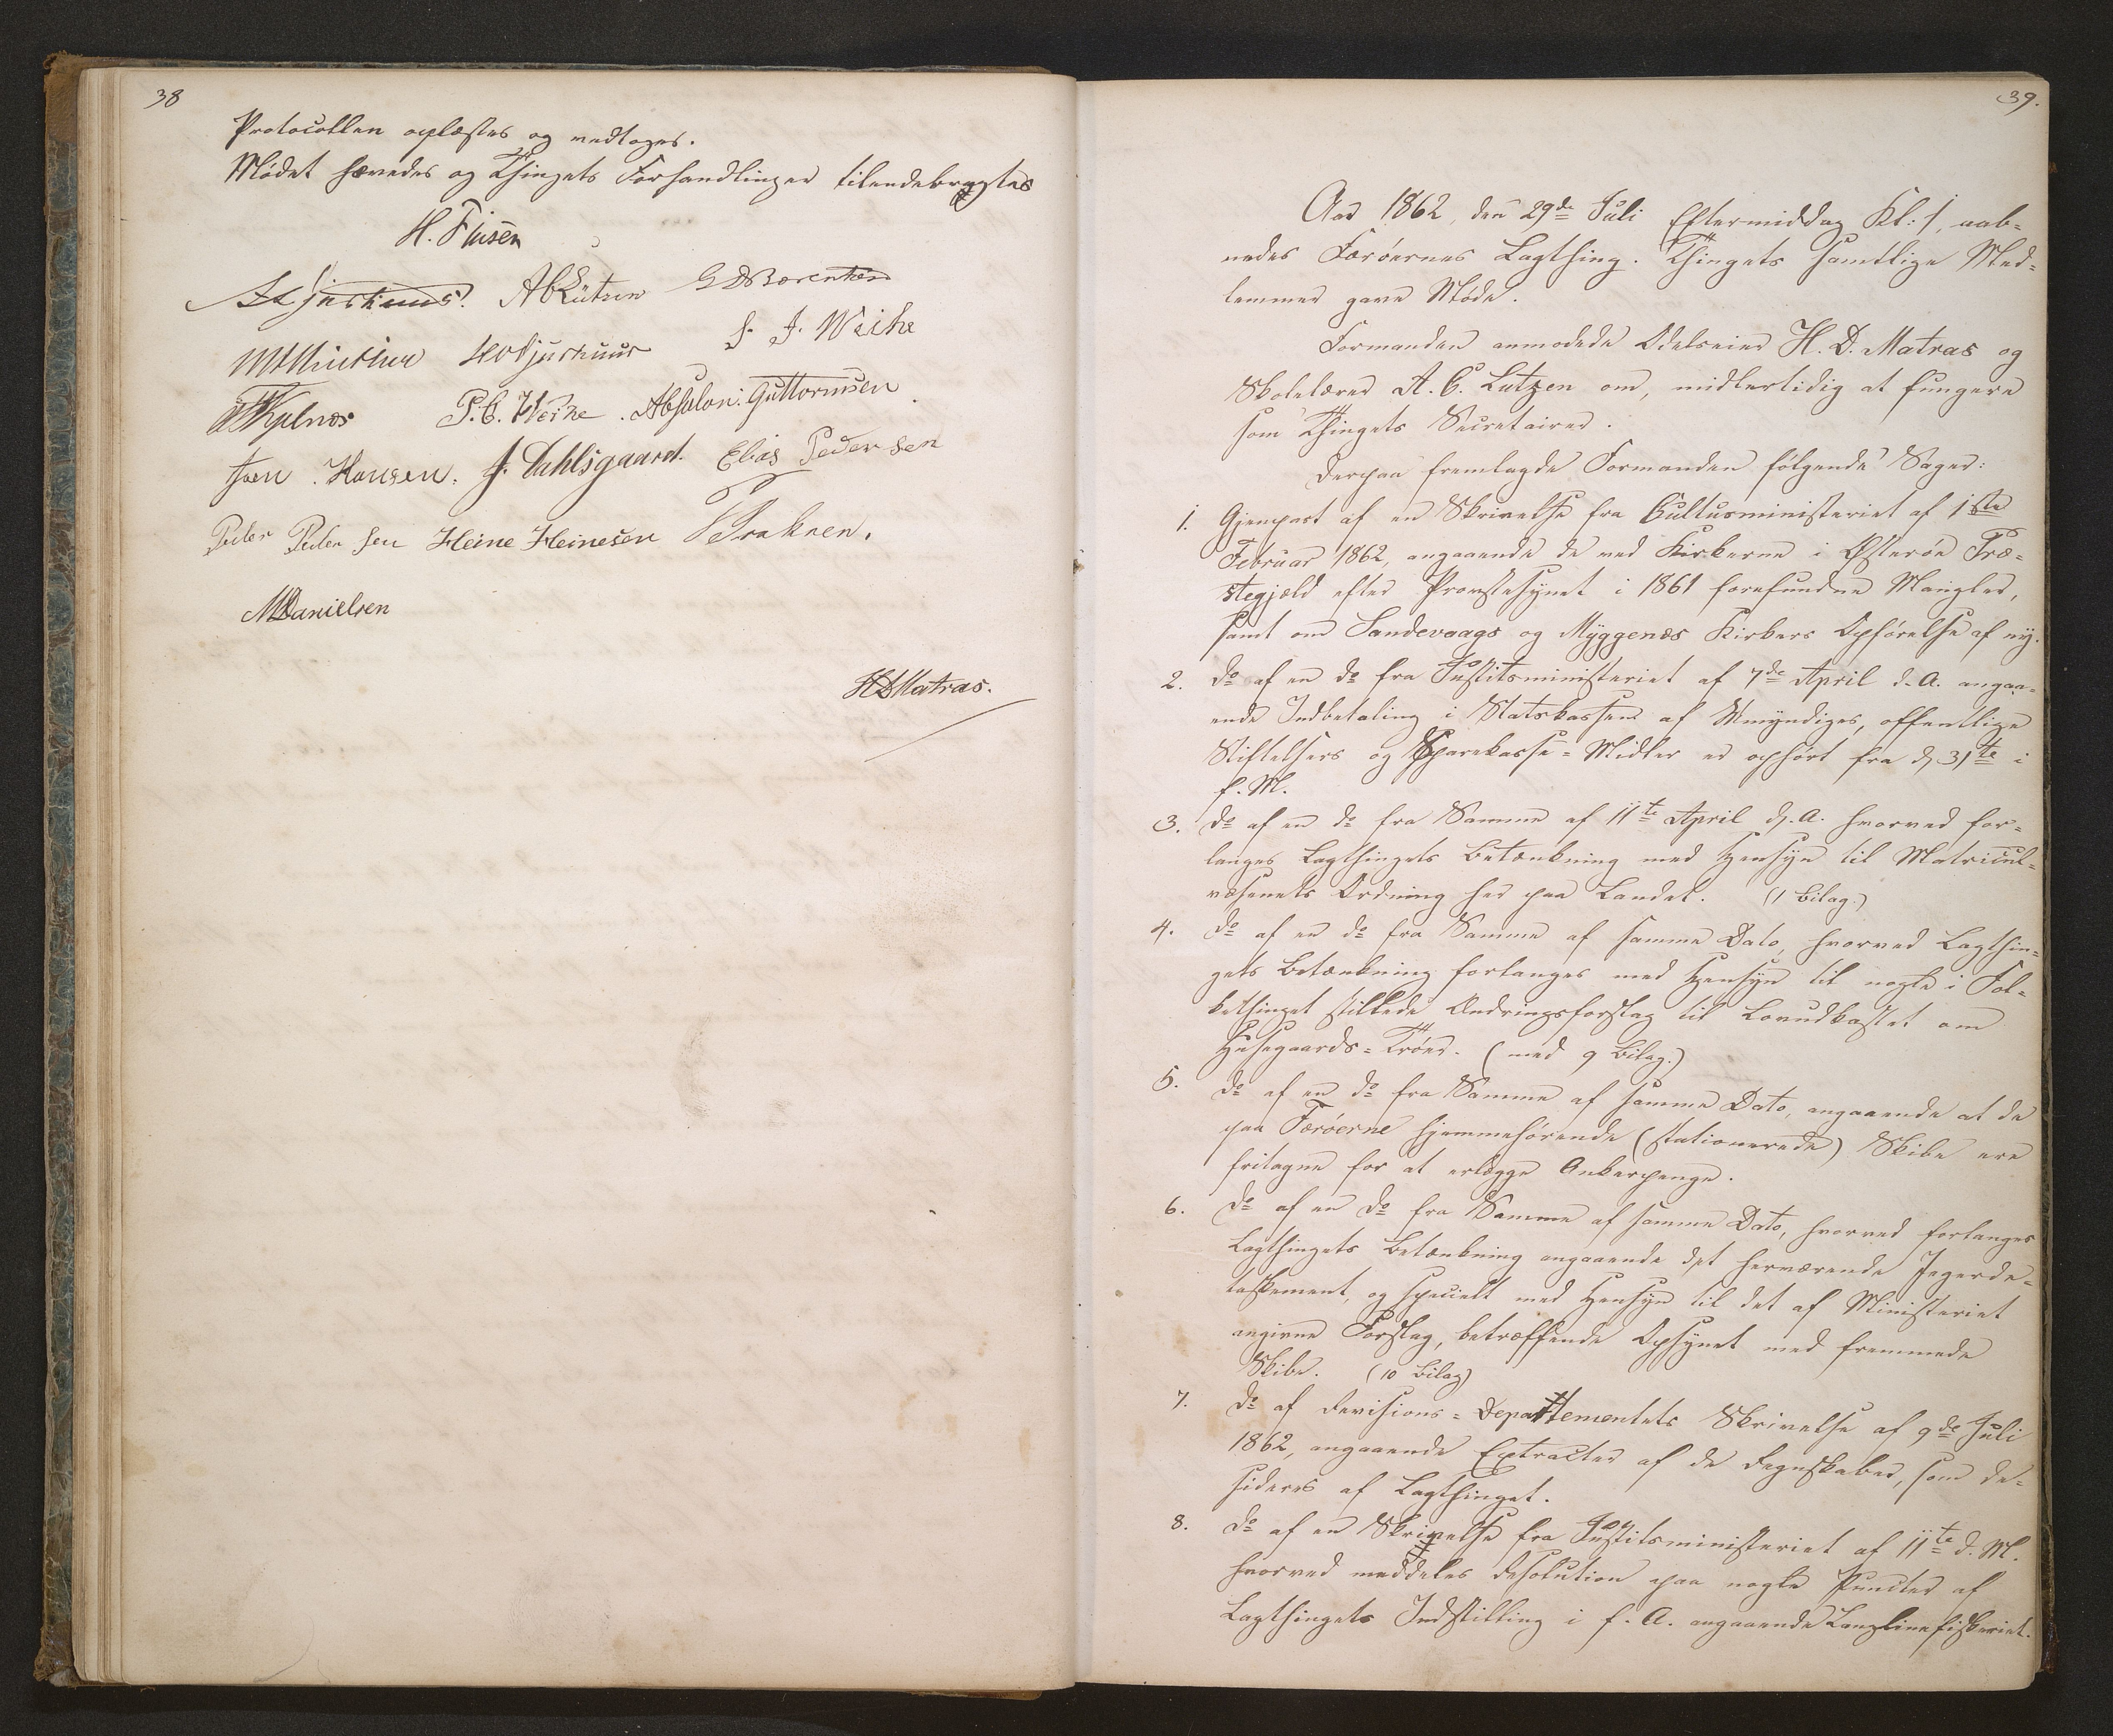 38
Protocollen oplæstes og vedtoges.
Mødet hævedes og Thingets Forhandlinger tilendebragtes
H. Finsen
A. C. Lützen
J. J. Weihe
P. C. Weihe. Absolon: Guttormsen.
Joen. Hansen. J. Dahlsgaard. Elias Pedersen
Peder Peder sen Heine Heinesen
MDanielsen
HDMatras.
39.
Aar 1862, den 29de Juli Eftermiddag Kl: 1, aab-
nedes Færøernes Lagthing. Thingets samtlige Med-
lemmer gave Møde.
Formanden anmodede Odelseier H. D. Matras og
Skolelærer A. C. Lutzen om, midlertidig at fungere
som Thingets Secretairer.
Derpaa fremlagde Formanden følgende Sager:
1. Gjenpart af en Skrivelse fra Cultusministeriet af 1ste
Februar 1862, angaaende de ved Kirkerne i Østerøe Præ-
stegjæld efter Provstesynet i 1861 forefundne Mangler,
samt om Sandevaags og Myggenæs Kirkers Opførelse af ny.
2. Do af en do fra Justitsministeriet af 7de April d. A. angaa-
ende Indbetaling i Statskassen af Umyndiges, offentlige
Stiftelsers og Sparekasse-Midler er ophørt fra d, 31te i
f. M.
3. Do af en do fra Samme af 11te April d. A. hvorved for-
langes Lagthingets Betænkning med Hensyn til Matricul-
væsenets Ordning her paa Landet. (1 Bilag.)
4. Do af en do fra Samme af samme Dato, hvorved Lagthin-
gets Betænkning forlanges med Hensyn til nogle i Fol-
kethinget stillede Ændringsforslag til Lovudkastet om
Husegaards-Trøer. (med 9 Bilag.)
5. Do af en do fra Samme af samme Dato, angaaende at de
paa Færøerne hjemmehørende (stationerede) Skibe ere
fritagne for at erlægge Ankerpenge.
6. Do af en do fra Samme af samme Dato, hvorved forlanges
Lagthingets Betænkning angaaende det herværende Jegerde-
taskement, og specielt med Hensyn til det af Ministeriet
angivne Forslag, betræffende Opsynet med fremmede
Skibe. (10 Bilag)
7. Do af Revisions-Departementets Skrivelse af 9de Juli
1862, angaaende Extracter af de Regnskaber, som de-
sideres af Lagthinget.
8. Do af en Skrivelse fra Justitsministeriet af 11te d. M.
hvorved meddeles Resolution paa nogle Puncter af
Lagthingets Indstilling i f. A. angaaende Langlinefiskeriet.